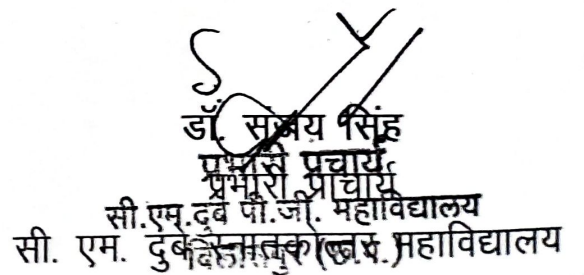 डॉ. संजय सिंह
प्रभारी प्राचार्य
प्रभारी प्राचार्य
सी.एम.दुबे पी.जी. महाविद्यालय
सी. एम. दुबे स्नातकोत्तर महाविद्यालय